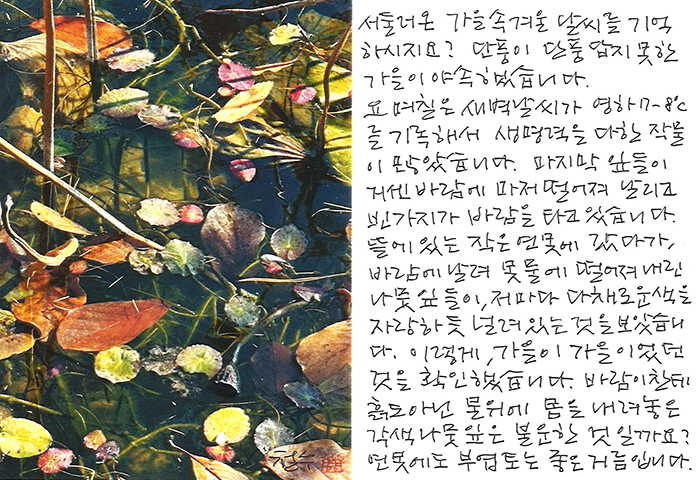 서둘러온 가을속겨울 날씨를 기억
하시지요? 단풍이 단풍답지 못한
가을이 야속했습니다.
요 며칠은 새벽날씨가 영하 7~8℃
를 기록해서 생명력을 다한 작물
이 많았습니다. 마지막 잎들이
거센 바람에 마저 떨어져 날리고
빈가지가 바람을 타고 있습니다.
뜰에 있는 작은 연못에 갔다가,
바람에 날려 못물에 떨어져내린
나뭇잎들이, 저마다 다채로운색을
자랑하듯 널려있는 것을 보았습니
다. 이렇게, 가을이 가을이었던
것을 확인했습니다. 바람이찬데
흙도아닌 물위에 몸을 내려놓은
각색나뭇잎은 불운한 것일까요?
연못에도 부엽토는 좋은거름입니다.
철수